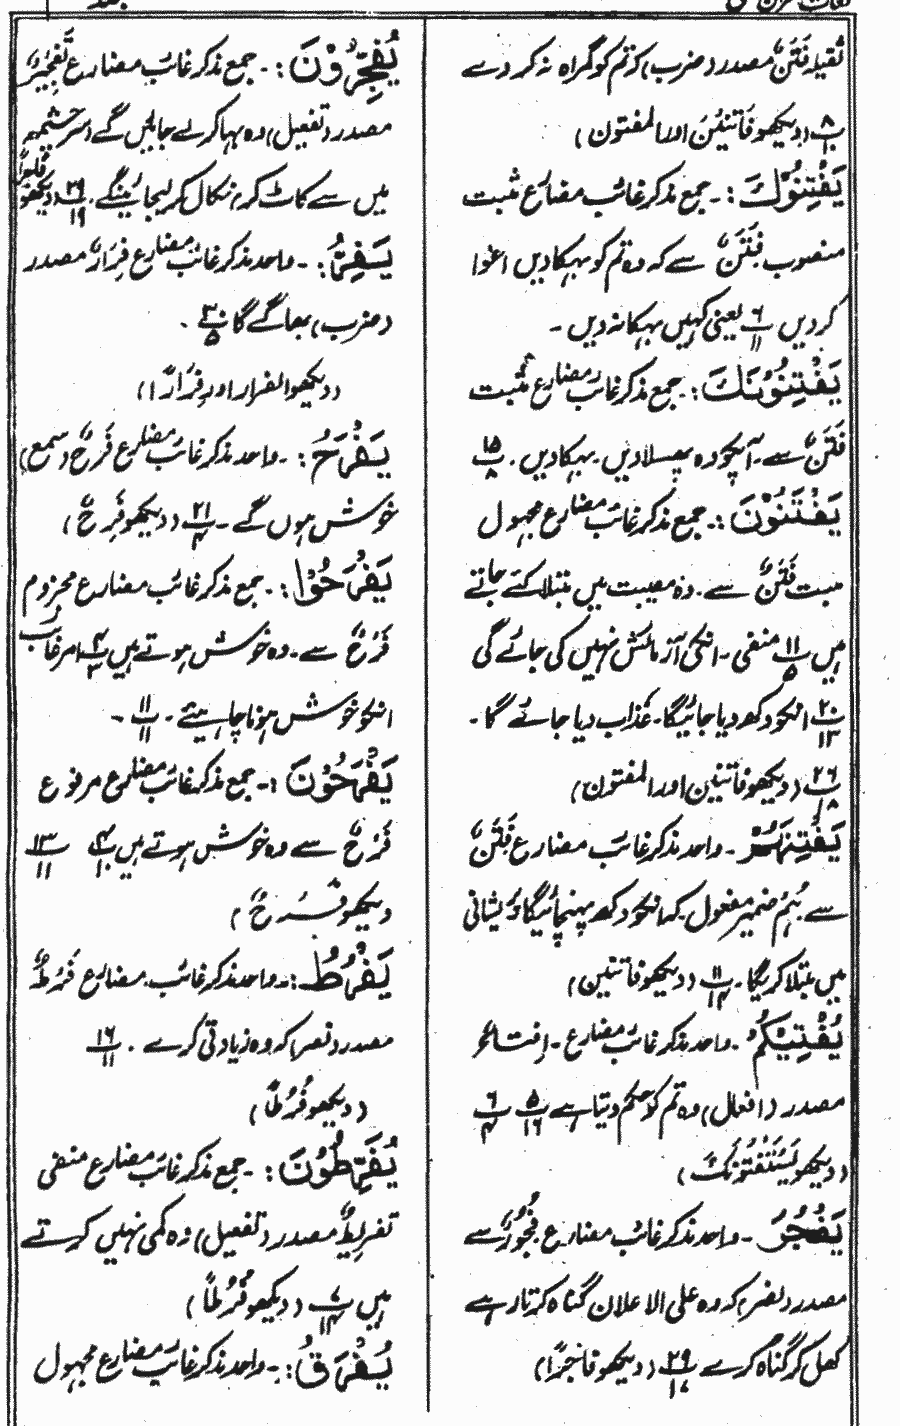 تقید فَتَنٌ مصدر (ضرب) کہ تم کو گمراہ نہ کر دے
۸/۱۰ (دیکھو فَاتِنِیْنَ اور المفتون)
یَفْتِنُوْکَ :- جمع مذکر غائب مضارع مثبت
منصوب فَتَنٌ سے کہ وہ تم کو بہکا دیں اغوا
کر دیں ۶/۱۱ یعنی کہیں بہکا نہ دیں -
یَفْتِنُوْنَکَ :- جمع مذکر غائب مضارع مثبت
فَتَنٌ سے - آپکو وہ پھسلا دیں - بہکا دیں - ۱۵/۸
یَفْتَنُوْنَ :- جمع مذکر غائب مضارع مجہول
مبت فَتَنٌ سے - وہ مصیبت میں مبتلا کئے جاتے
ہیں ۱۱/۵ منفی - انکی آزمائش نہیں کی جائے گی
۲۰/۱۳ انکو دکھ دیا جائیگا - عذاب دیا جائے گا -
۲۶/۱۸ (دیکھو فاتنین اور المفتون)
یَفْتِنَہُمْ - واحد مذکر غائب مضارع فَتَنٌ
سے ہُمْ ضمیر مفعول - کہ انکو دکھ پہنچائیگا پریشانی
میں مبتلا کریگا - ۱۱/۱۴ (دیکھو فاتنین)
یُفْتِیْکُمْ - واحد مذکر غائب مضارع - اِفتاءٌ
مصدر (افعال) وہ تم کو حکم دیتا ہے ۵/۱۶ ۶/۴
(دیکھو یَسْتَفْتُوْنَکَ)
یَفْجُرُ - واحد مذکر غائب مضارع فُجُوْرٌ سے
مصدر (نصر) کہ وہ علی الاعلان گناہ کرتا رہے
کھل کر گناہ کرے ۲۹/۱۷ (دیکھو فاجرًا)
یُفَجِّرُوْنَ :- جمع مذکر غائب مضارع تَفْجِیْرٌ
مصدر (تفعیل) وہ بہا کر لے جائیں گے (سرچشمہ
میں سے کاٹ کر، نکال کر لیجائینگے - ۲۹/۱۹ (دیکھو فاجرًا
یَفِرُّ :- واحد مذکر غائب مضارع فِرَارٌ مصدر
(ضرب) بھاگے گا ۳۰/۵ -
(دیکھو الفرار اور فِرَارًا)
یَفْرَحُ :- واحد مذکر غائب مضارع فَرَحٌ (سمع)
خوش ہوں گے - ۲۱/۴ (دیکھو فَرِحٌ)
یَفْرَحُوْا :- جمع مذکر غائب مضارع مجزوم
فَرَحٌ سے - وہ خوش ہوتے ہیں ۴/۳ امر غائب
انکو خوش ہونا چاہیئے - ۱۱/۱۱ -
یَفْرَحُوْنَ :- جمع مذکر غائب مضارع مرفوع
فَرَحٌ سے وہ خوش ہوتے ہیں ۴/۱۰ ۱۳/۱۱
دیکھو فَرِحٌ)
یَفْرُطَ :- واحد مذکر غائب - مضارع فَرْطٌ
مصدر (نصر) کہ وہ زیادتی کرے - ۱۶/۱۱
(دیکھو فُرُطًا)
یُفَرِّطُوْنَ :- جمع مذکر غائب مضارع منفی
تفریطٌ مصدر (تفعیل) وہ کمی نہیں کرتے
ہیں ۷/۱۴ (دیکھو فُرُطًا)
یُفْرَقُ :- واحد مذکر غائب مضارع مجہول